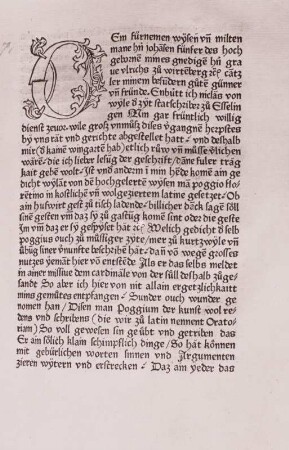 Dem fürnemen wÿsen vn̄ milten
mane hn̄ johāsen fünfer des hoch
gebornē mines gnedigē hn̄ gra
ue vlrichs zů wirtēberg ꝛc̄ cātz
ler minem besūdern gůtē günner
vn̄ fründe. Enbütt ich niclas von
wyle d zÿt statschriber zů Esselin
gen Min gar früntlich willig
dienst zeuor. wie groß vnmůß dises v̄gangnē herpstes
by vns rāt vnd gericht abgestellet hatt vnd deßhalb
mir (d kamē wingartē hab) etlich růw vn̄ můsse ōlichen
wārē die ich lieber lesūg der geschrifft dāne fuler träg
kait gebē wolt Ist vnd anderm ī min hēde komē ain ge
dicht wÿlāt von dē hochgelertē wÿsen mā poggio flo
rētino in kostlichē vn̄ wolgezierten latine gesetzet Ob
ain hußwirt gest zů tisch ladende billicher dāck sagē söll
sinē gestēn vm̄ daz sÿ zů gastūg komē sint oder die geste
Im vm̄ daz er sÿ gespÿset hāt ꝛc̄ Welich gedicht d selb
poggius ouch zů můssiger zÿte mer zů kurtzwÿle vn̄
übūg siner v̄nunfte beschribē hāt dā vō wegē großes
nutzes yemāt hier vō entstēde Als er das selbs meldet
in ainer missiue dem cardināle von der süll deßhalb zůge
sandt So aber ich hier von nit allain ergetzlichkaitt
mins gemütes entpfangen Sunder ouch wunder ge
nomen han Disen man Poggium der kunst wol re
dens vnd schribens (die wir zů latin nennent Orato
riam) So voll gewesen sin geübt vnd getriben das
Er ain sölich klain schimpflich dinge So hāt können
mit gebürlichen worten sinnen vnd Argumenten
zieren wÿtern vnd erstrecken Daz ain yeder das